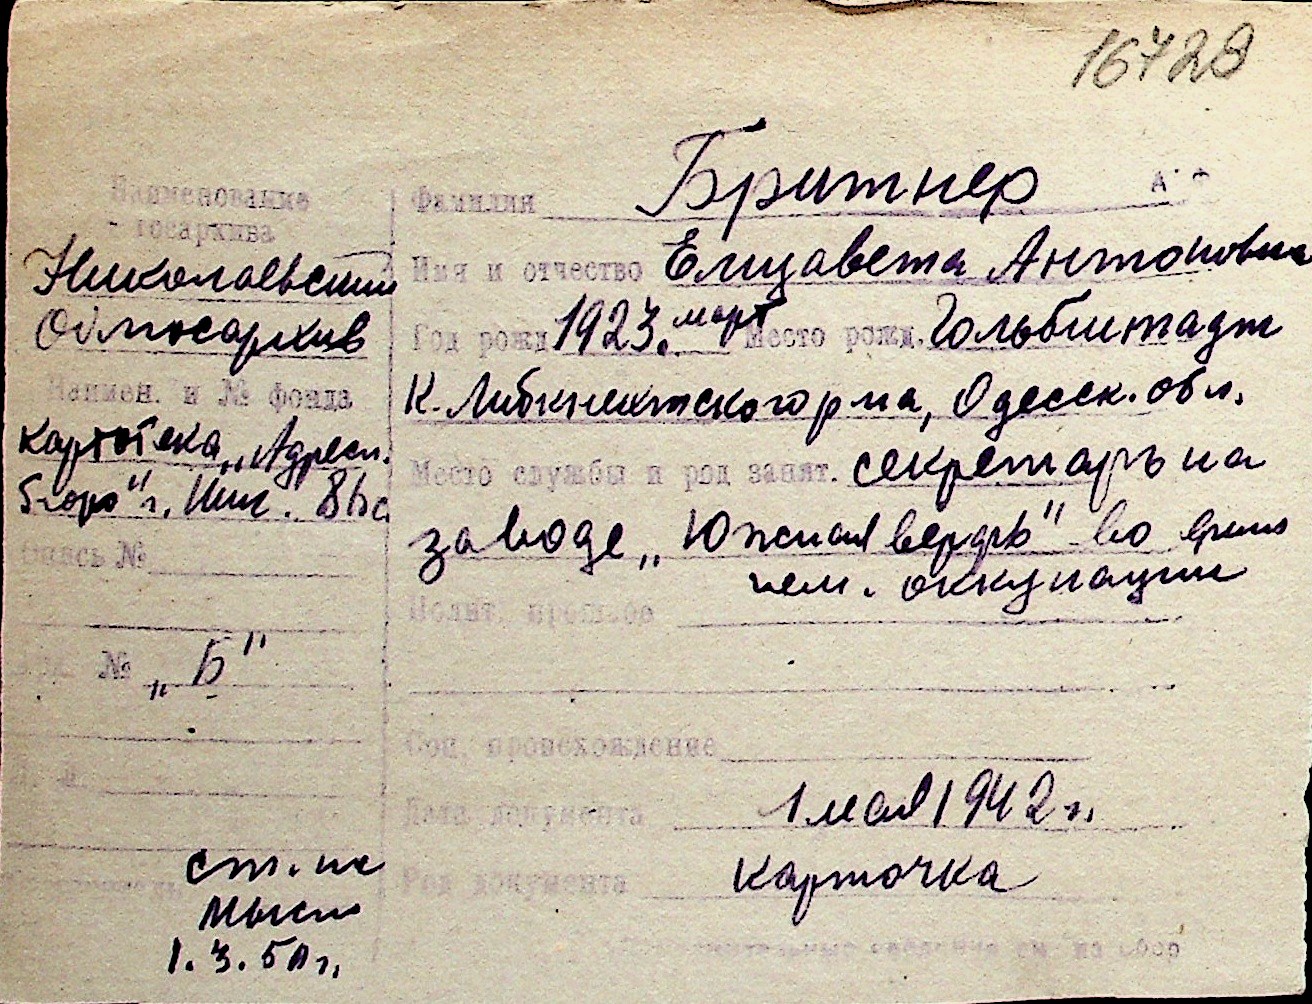 16728
Наименование
госархива
Николаевский
Облгосархив
Наимен. и № фонда
Картотека „Адресн.
бюро" г. Ник.
Опись №
№ „Б"
Фамилия Бритнер
Имя и отчество Елизавета Антоновна
Год рожд. 1923. март Место рожд. Гольбштадт
К. Либкнехтского р-на, Одесск. обл.
Место службы и род занят. секретарь на
заводе „Южная верфь" во время
нем. оккупации
Полит. прошлое
Соц. происхождение
Дата документа 1 мая 1942 г.
Род документа карточка
ст. нс
1.3.50 г.
сведения см. на обор